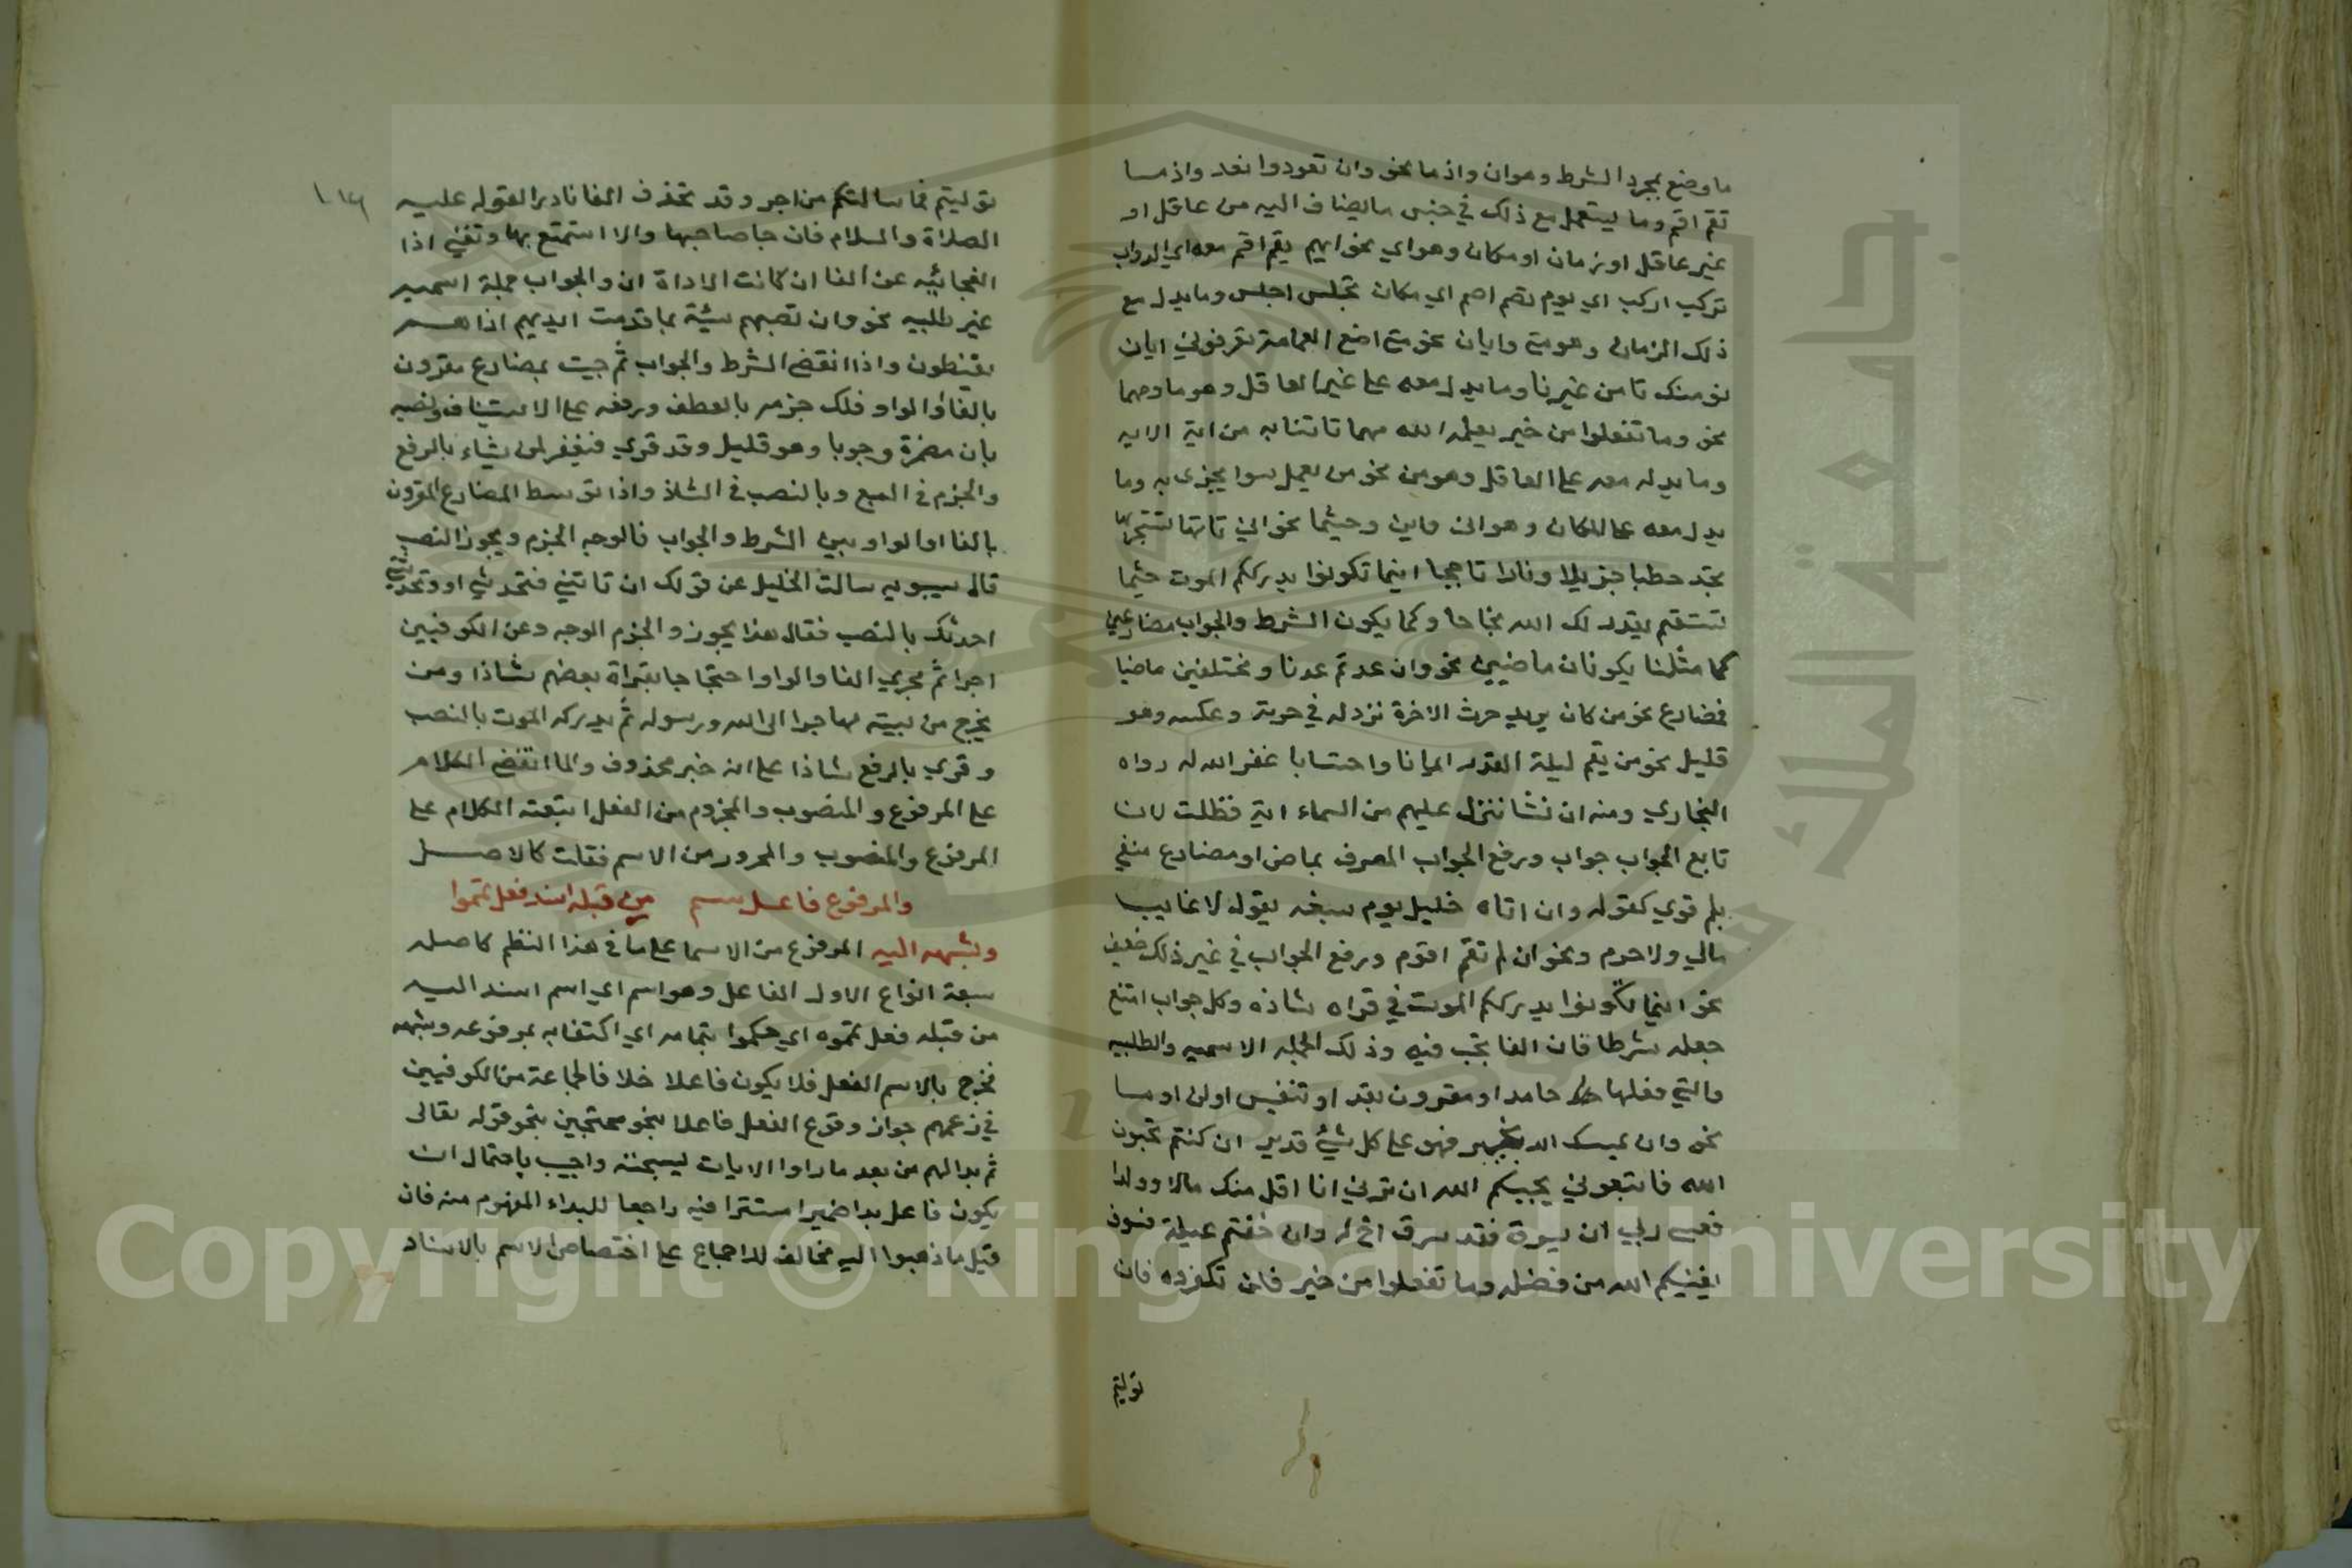 ما وضع لمجرد الشرط وهو ان واذ ما نحو وان تعودوا نعد واذ ما
تقم اقم وما يستعمل مع ذلك في جنس ما يضاف اليه من عاقل او
غير عاقل او زمان او مكان وهو اي نحو ايهم يقم اقم معه اي الدواب
تركب اركب اي يوم تصم اصم اي مكان تجلس اجلس وما يدل مع
ذلك الزمان وهو متى وايان نحو متى اضع العمامة تعرفوني ايان
نومنك تامن غيرنا وما يدل معه على غير العاقل وهو ما ومهما
نحو وما تفعلوا من خير يعلمه الله مهما تاتنا به من اية الاية
وما يدل معه على العاقل وهو من نحو من يعمل سوا يجز به وما
يدل معه على المكان وهو انى واين وحيثما نحو انى تاتها تستجر بها
تجد حطبا جزيلا ونارا تاججا اينما تكونوا يدرككم الموت حيثما
تستقم يقدر لك الله نجاحا وكما يكون الشرط والجواب مضارعين
كما مثلنا يكونان ماضيين نحو وان عدتم عدنا ومختلفين ماضيا
فمضارع نحو من كان يريد حرث الاخرة نزد له في حرثه وعكسه وهو
قليل نحو من يقم ليلة القدر ايمانا واحتسابا غفر الله له رواه
البخاري ومنه ان نشا ننزل عليهم من السماء اية فظلت لان
تابع الجواب جواب ورفع الجواب المصرف بماض او مضارع منفي
بلم قوي كقوله وان اتاه خليل يوم سبغه يقول لا غايب
مالي ولا حرم ونحو ان لم تقم اقوم ورفع الجواب في غير ذلك ضعيف
نحو اينما تكونوا يدرككم الموت في قراه شاذه وكل جواب امتنع
جعله شرطا فان الفا تجب فيه وذلك الجمله الاسميه والطلبيه
والتي فعلها جامد او مقرون بقد او تنفيس او لن او ما
نحو وان يمسك بخير فهو على كل شيء قدير ان كنتم تحبون
الله فاتبعوني يحببكم الله ان ترني انا اقل منك مالا وولدا
فعسى ربي ان يسرق فقد سرق اخ له وان خفتم عيلة فسوف
يغنيكم الله من فضله وما تفعلوا من خير فلن تكفروه فان
توليتم
١٠٧
توليتم فما سالتكم من اجر وقد تحذف الفا نادرا لقوله عليه
الصلاة والسلام فان جا صاحبها والا استمتع بها وتغني اذا
الفجائيه عن الفا ان كانت الاداة ان والجواب جملة اسميه
غير طلبيه نحو وان تصبهم سيئة بما قدمت ايديهم اذا هم
يقنطون واذا انقضى الشرط والجواب ثم جيت بمضارع مقرون
بالفا او الواو فلك جزمه بالعطف ورفعه على الاستيناف ونصبه
بان مضمرة وجوبا وهو قليل وقد قري فيغفر لمن يشاء بالرفع
والجزم في السبع وبالنصب في الشاذ واذا توسط المضارع المقرون
بالفا او الواو بين الشرط والجواب فالوجه الجزم ويجوز النصب
قال سيبويه سالت الخليل عن قولك ان تاتني فتحدثني او وتحدثني
احدثك بالنصب فقال هذا يجوز والجزم الوجه وعن الكوفيين
اجرا ثم مجري الفا والواو احتجاجا بقراة بعضهم شاذا ومن
يخرج من بيته مهاجرا الى الله ورسوله ثم يدركه الموت بالنصب
وقري بالرفع شاذا على انه خبر محذوف ولما انقضى الكلام
على المرفوع والمنصوب والمجزوم من الفعل اتبعته الكلام على
المرفوع والمنصوب والمجرور من الاسم فقلت كالاصل
والمرفوع فاعل سم من قبله اسند فعل تموا
وشبهه اليه المرفوع من الاسما على ما في هذا النظم كاصله
سبعة انواع الاول الفاعل وهو اسم اي اسم اسند اليه
من قبله فعل تموه اي حكموا بتمامه اي اكتفا به بمرفوعه وشبهه
فخرج بالاسم الفعل فلا يكون فاعلا خلافا لجماعة من الكوفيين
في زعمهم جواز وقوع الفعل فاعلا محتجين بنحو قوله تعالى
ثم بدا لهم من بعد ما راوا الايات ليسجننه واجيب باحتمال ان
يكون فاعل بدا ضميرا مستترا فيه راجعا للبداء المفهوم منه فان
قيل ما ذهبوا اليه مخالف للاجماع على اختصاص الاسم بالاسناد
جامعة الملك سعود
Copyright © King Saud University